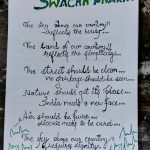 SWACHH BHARAT
The sky above our country!!
reflects the purity...
The Land of our country!!
reflects the simplicity...
The street should be clean...
no garbage should be seen...
Nature should get its place...
India needs a new face...
Air should be pure...
deserts needs to be cured...
The sky above our country!!